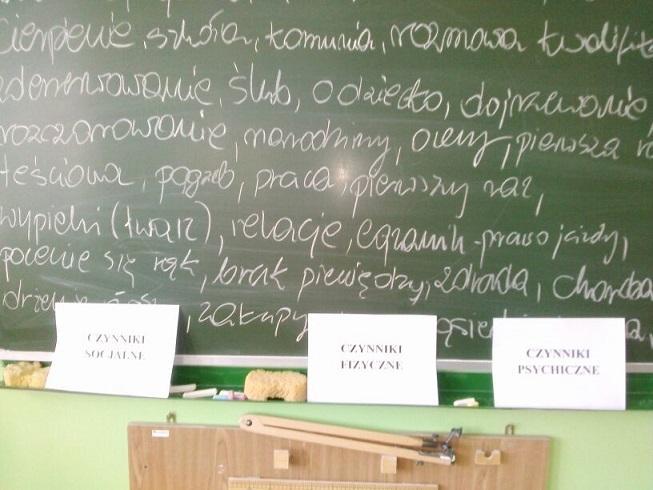 cierpienie, szkoła, komunia, rozmowa
zdenerwowanie, ślub, o dziecko, dojrzewanie
rozczarowanie, narodziny, oceny, pierwsza
teściowa, pogrzeb, praca, pierwszy raz,
wypieki (twarz), relacje, egzamin - prawo jazdy,
pocenie się rąk, brak pieniędzy, zdrada, choroba
drżenie
CZYNNIKI
SOCJALNE
CZYNNIKI
FIZYCZNE
CZYNNIKI
PSYCHICZNE